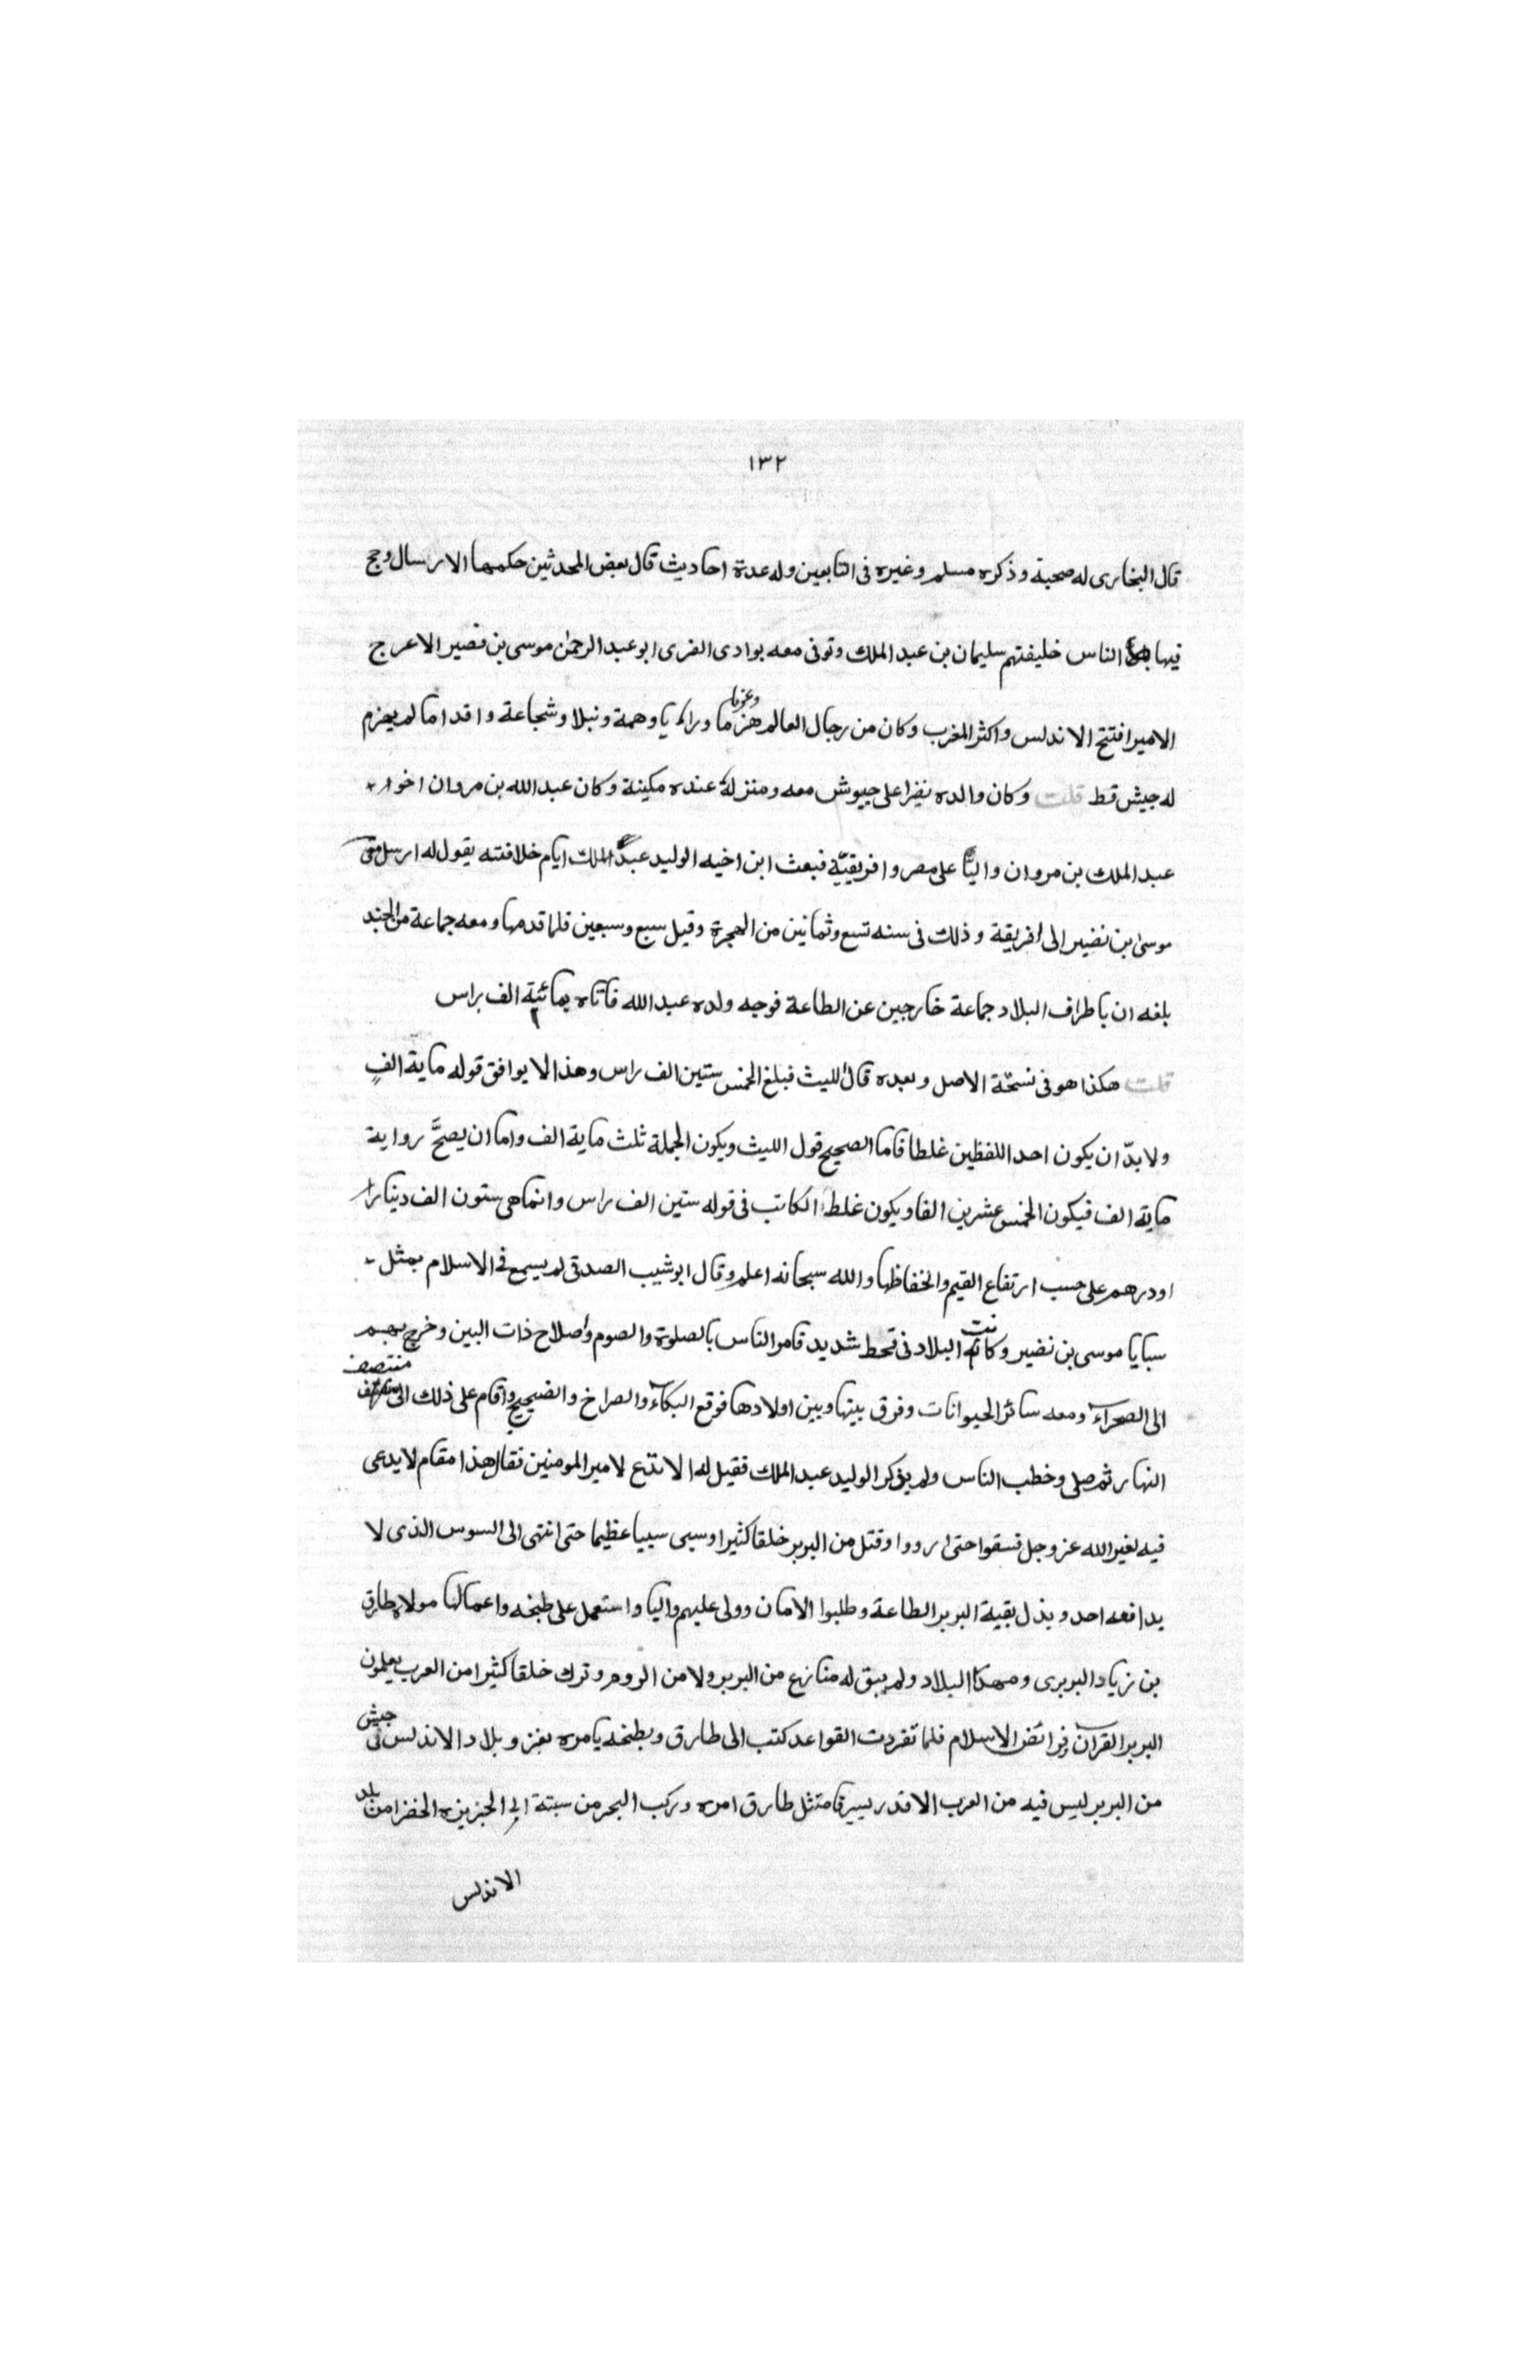 ١٣٢
قال البخارى له صحبة وذكره مسلم وغيره فى التابعين وله عدة احاديث قال بعض المحدثين حكمها الارسال وحج
فيها الناس خليفتهم سليمان بن عبد الملك وتوفى معه بوادى القرى ابو عبد الرحمن موسى بن نصير الاعرج
الامير افتتح الاندلس واكثر المغرب وكان من رجال العالم هزما وعزما ورايا وهمة ونبلا وشجاعة واقداما لم يهزم
له جيش قط قلت وكان والده نضرا على جيوش معه ومنزلة عنده مكينة وكان عبد الله بن مروان اخو
عبد الملك بن مروان واليا على مصر وافريقيّة فبعث ابن اخيه الوليد عبد الملك ايام خلافته يقول له ارسل
موسى بن نضير الى افريقة وذلك فى سنه تسع وثمانين من الهجرة وقيل سبع وسبعين فلما قدمها ومعه جماعة من الجند
بلغه ان باطراف البلاد جماعة خارجين عن الطاعة فوجه ولده عبد الله فاتاه بمائية الف براس
قلت هكذا هو فى نسخة الاصل وبعده قال الليث فبلغ الخمس ستين الف راس وهذا لا يوافق قوله ماية الف
ولا بدّ ان يكون احد اللفظين غلطا فاما الصحيح قول الليث ويكون الجملة ثلث ماية الف واما ان يصحّ رواية
ماية الف فيكون الخمس عشرين الفا ويكون غلط الكاتب فى قوله ستين الف راس وانما هى ستون الف دينارا
او درهم على حسب ارتفاع القيم وانخفاظها والله سبحانه اعلم وقال ابو شبيب الصدقى لم يسمع فى الاسلام بمثل
سبايا موسى بن نضير وكانت البلاد فى قحط شديد فامر الناس بالصلوة والصوم واصلاح ذات البين وخرج بهم
الى الصحراء ومعه سائر الحيوانات وفرق بينها وبين اولادها فوقع البكاء والصراخ والضجيج واقام على ذلك الى منتصف
النهار ثم صلى وخطب الناس ولم يذكر الوليد عبد الملك فقيل له الا تدع لامير المومنين فقال هذا مقام لا يدعى
فيه لغير الله عز وجل فسقوا حتى ارووا وقتل من البربر خلقا كثيرا وسبى سبيا عظيما حتى انتهى الى السوس الذى لا
يدافعه احد وبذل بقية البربر الطاعة وطلبوا الامان وولى عليهم واليا واستعمل على طبخه واعمالها مولاه طارق
بن زياد البربرى ومهد البلاد ولم يبق له منازع من البربر ولا من الروم وترك خلقا كثيرا من العرب يعلمون
البربر القرآن وفرائض الاسلام فلما تقررت القواعد كتب الى طارق وبطنخه يامره بغزو بلاد الاندلس فى جيش
من البربر ليس فيه من العرب الا قدر يسير فامتثل طارق امره وركب البحر من سبتة الى الجزيزه الخضرا من بلد
الاندلس